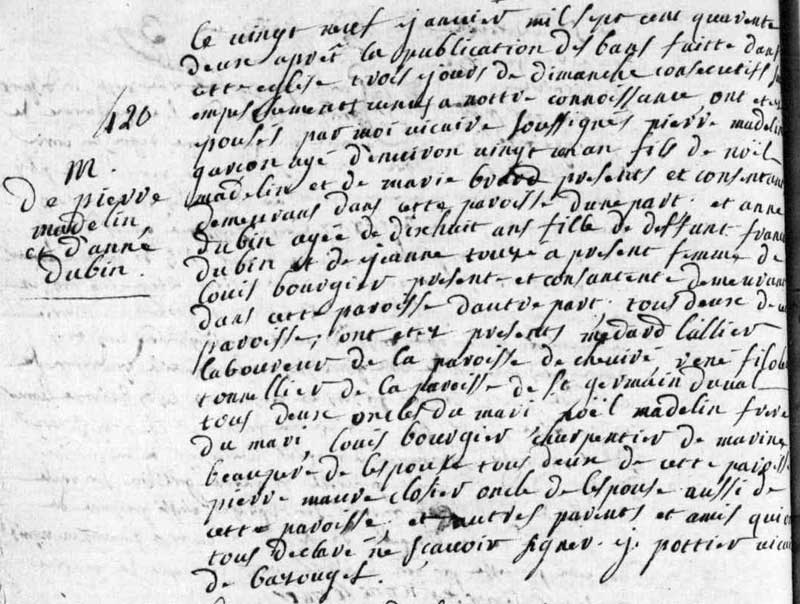 420
M.
De pierre
madelin
et d'anne
Dubin.
Ce vingt neuf janvier mil sept cent quarente
deux aprêt la publication des bans faitte dans
cette eglise trois jours de dimanche consecutifs
empeschements venus a nottre connoissance, ont etez
epousés par moi vicaire soussignes pierre madelin
garçon agé d'environ vingt un an fils de noël
madelin et de marie presents et consentant
demeurans dans cette paroisse d'une part. et anne
Dubin agée de dixhuit ans fille de deffunt francois
Dubin et de jeanne touzé a present femme de
Louis bourgier presente et consantente demeurant
dans cette paroisse d'autre part. tous deux de cette
paroisse, ont etez presents medard Lallier
laboureur de la paroisse de cheviré, rené
tonnellier de la paroisse de St germain du val
tous deux oncles du mari noël madelin frere
du mari, Louis bourgier charpentier de marine
beaupere de l'espouse tous deux de cette paroisse
pierre mauve closier oncle de l'espouse aussi de
cette paroisse, et d'autres parents et amis qui ont
tous declaré ne sçavoir signer. j. pottier vicaire
de bazouges.